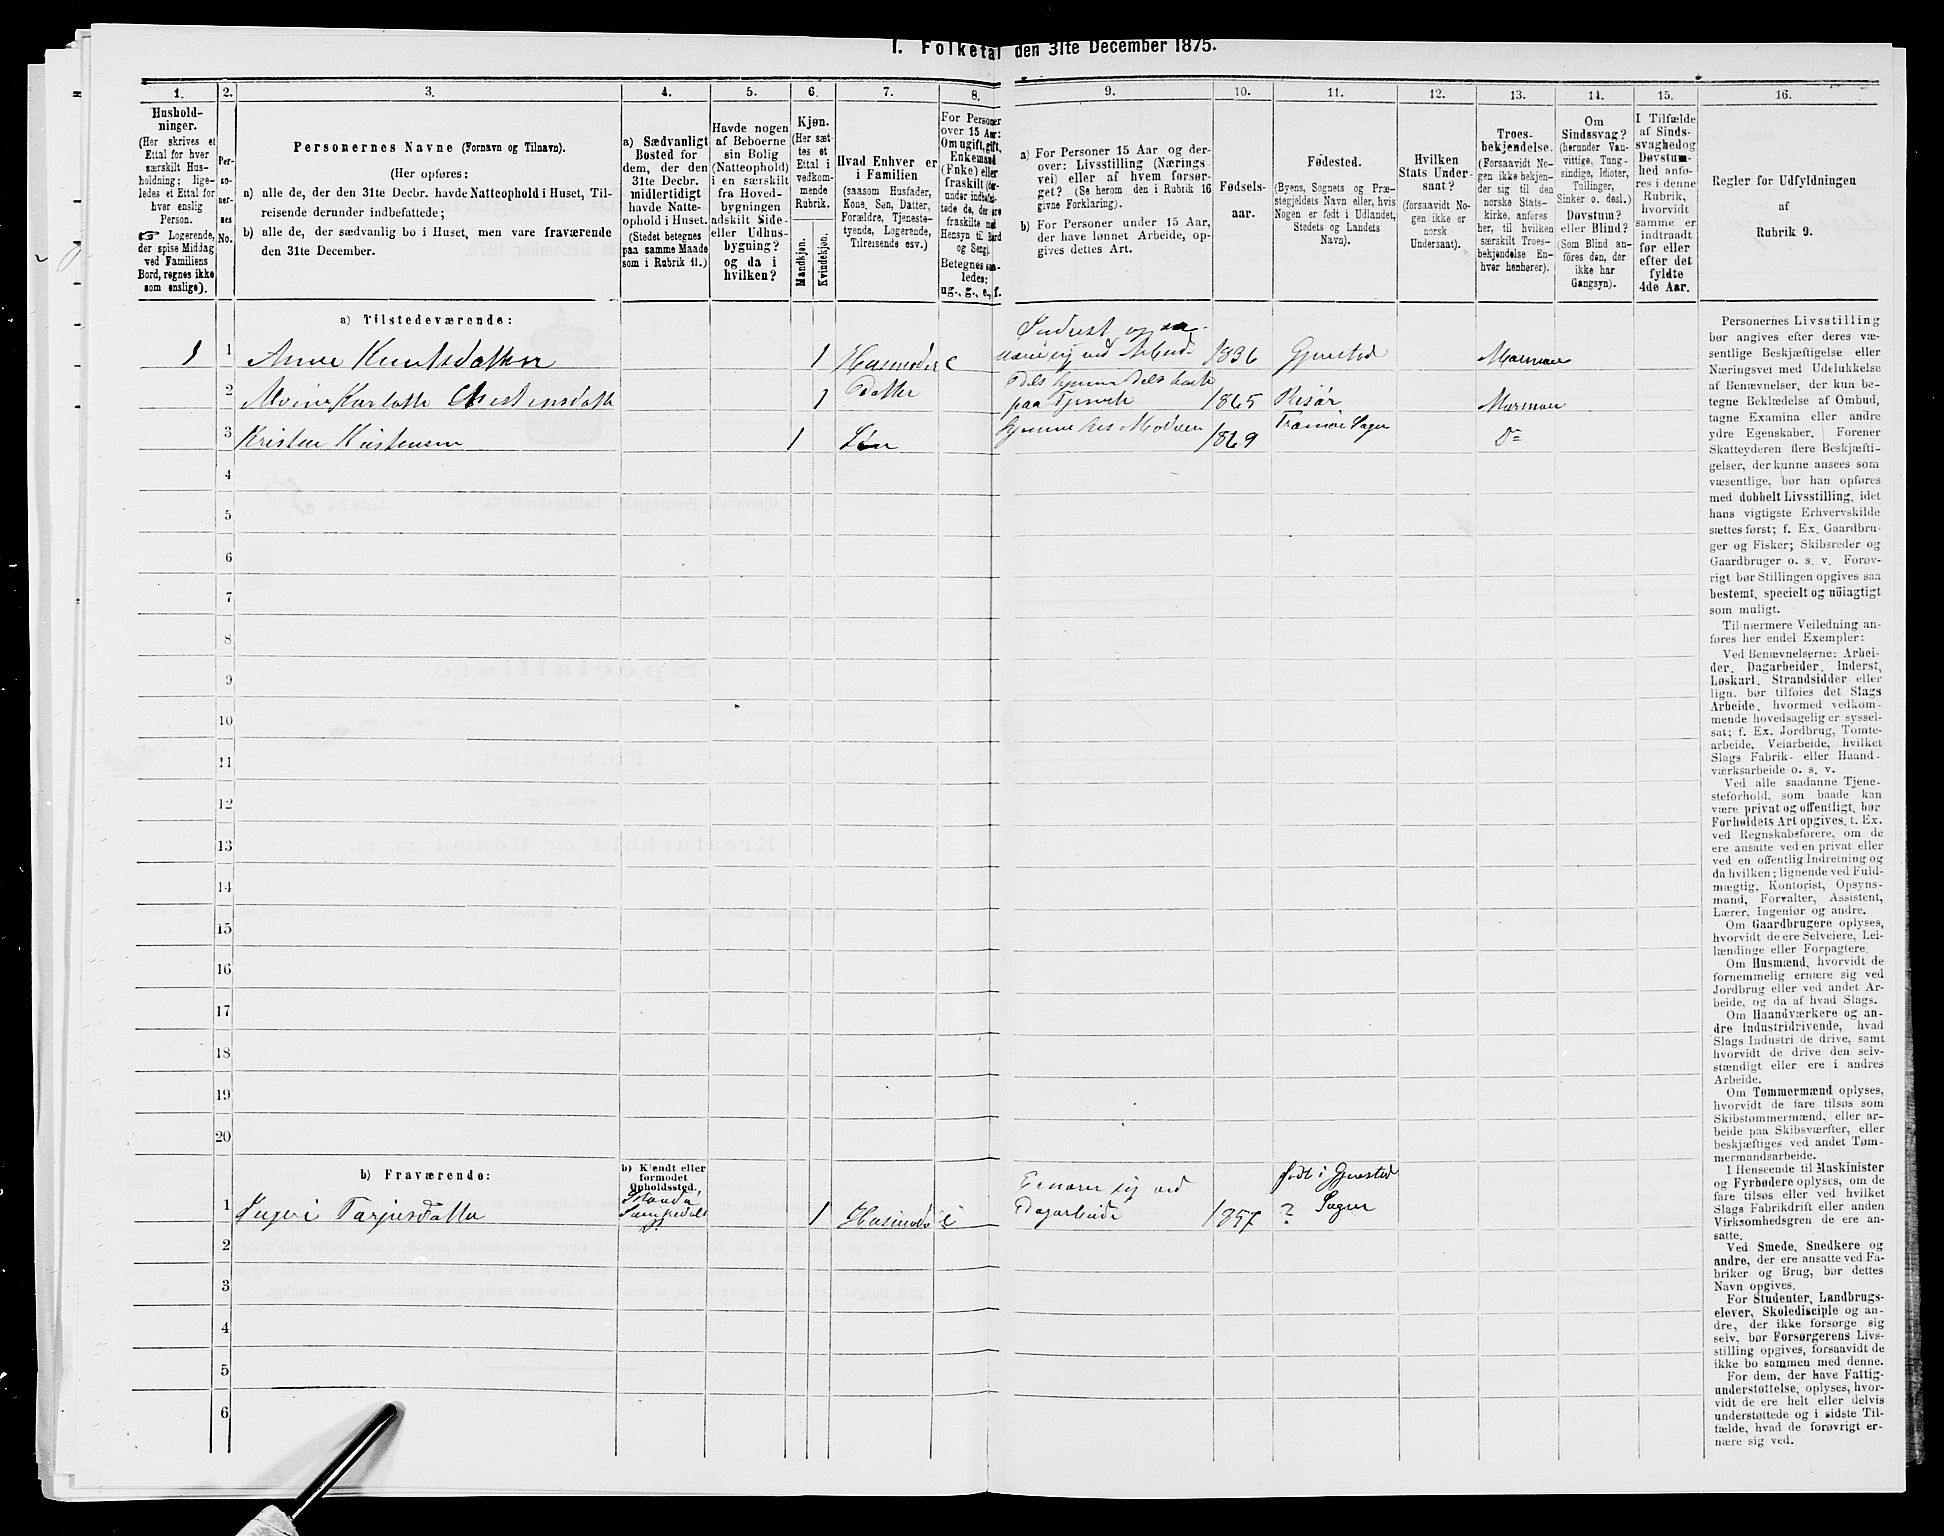 I. Folketal den 31te December 1875.
1.
Hushold-
ninger.
(Her skrives et
Ettal for hver
særskilt Hus-
holdning; lige-
ledes et Ettal for
hver enslig
Person.
☞ Logerende,
der spise Middag
ved Familiens
Bord, regnes ikke
som enslige).
2.
Per-
so-
ner-
nes
No.
3.
Personernes Navne (Fornavn og Tilnavn).
(Her opføres:
a) alle de, der den 31te Decbr. havde Natteophold i Huset, Til-
reisende derunder indbefattede;
b) alle de, der sædvanlig bo i Huset, men vare fraværende
den 31te December.
4.
a) Sædvanligt
Bosted for
dem, der den
31te Decbr.
midlertidigt
havde Natte-
ophold i Huset.
(Stedet betegnes
paa samme Maade
som i Rubrik 11.)
5.
Havde nogen
af Beboerne
sin Bolig
(Natteophold)
i en særskilt
fra Hoved-
bygningen
adskilt Side-
eller Udhus-
bygning?
og da i
hvilken?
6.
Kjøn.
(Her sæt-
tes et
Ettal i
vedkom-
mende
Rubrik.
Mandkjøn.
Kvindekjøn.
7.
Hvad Enhver er
i Familien
(saasom Husfader,
Kone, Søn, Datter,
Forældre, Tjeneste-
tyende, Logerende,
Tilreisende osv.)
8.
For Personer
over 15 Aar:
Om ugift, gift,
Enkemand
(Enke) eller
fraskilt (der-
under indbefat-
tede de, der ere
fraskilte med
Hensyn til Bord
og Seng).
Betegnes saa-
ledes:
ug., g., e., f.
9.
a) For Personer 15 Aar og der-
over: Livsstilling (Nærings
vei) eller af hvem forsør-
get? (Se herom den i Rubrik 16
givne Forklaring).
b) For Personer under 15 Aar,
der have lønnet Arbeide, op-
gives dettes Art.
10.
Fødsels-
aar.
11.
Fødested.
(Byens, Sognets og Præ-
stegjeldets Navn, eller hvis
Nogen er født i Udlandet,
Stedets og Landets
Navn).
12.
Hvilken
Stats Under-
saat?
(forsaavidt No-
gen ikke er
norsk
Undersaat).
13.
Troes-
bekjendelse.
(Forsaavidt No-
gen ikke bekjen-
der sig til den
norske Stats-
kirke, anføres
her, til hvilken
særskilt Troes-
bekjendelse En-
hver henhører).
14.
Om
Sindssvag?
(herunder Van-
vittige, Tung-
sindige, Idioter,
Tullinger,
Sinker o. desl.)
Døvstum?
eller Blind?
(Som Blind an-
føres den, der
ikke har
Gangsyn).
15.
I Tilfælde
af Sinds-
svaghed og
Døvstum-
hed anfø-
res i denne
Rubrik,
hvorvidt
samme er
indtraadt
før eller
efter det
fyldte
4de Aar.
16.
Regler for Udfyldningen
af
Rubrik 9.
a) Tilstedeværende:
Inderst og
1 1 Anne Knutsdatter 1 Husmoder e nærer sig ved Arbeide 1836 Gjerestad Mormon
2 Karlotte 1 Datter paa 1865 Risør Mormon
3 Kristen Kristensen 1 Søn hjemme hos Moderen 1869 Do
4
5
6
7
8
9
10
11
12
13
14
15
16
17
18
19
20
b) Fraværende:
b) Kjendt eller
formodet
Opholdssted.
1 Ingeri Tarjusdatter 1 Husmoder e Ernærer sig ved Dagarbeide født i Gjerestad ? Sogn
2
3
4
5
6
Personernes Livsstilling
bør angives efter deres væ-
sentlige Beskjæftigelse eller
Næringsvei med Udelukkelse
af Benævnelser, der kun be-
tegne Beklædelse af Ombud,
tagne Examina eller andre
ydre Egenskaber. Forener
Skatteyderen flere Beskjæfti-
gelser, der kunne ansees som
væsentlige, bør han opføres
med dobbelt Livsstilling, idet
hans vigtigste Erhvervskilde
sættes først; f. Ex. Gaardbru-
ger og Fisker; Skibsreder og
Gaardbruger o. s. v. Forøv-
rigt bør Stillingen opgives saa
bestemt, specielt og nöiagtigt
som muligt.
Til nærmere Veiledning an-
føres her endel Exempler:
Ved Benævnelserne: Arbei-
der, Dagarbeider, Inderst,
Løskarl, Strandsidder eller
lign. bør tilføies det Slags
Arbeide, hvormed vedkom-
mende hovedsagelig er syssel-
sat; f. Ex. Jordbrug, Tomte-
arbeide, Veiarbeide, hvilket
Slags Fabrik- eller Haand-
værksarbeide o. s. v.
Ved alle saadanne Tjene-
steforhold, som baade kan
være privat og offentligt, bør
Forholdets Art opgives, t. Ex.
ved Regnskabsførere, om de
ere ansatte ved en privat eller
ved en offentlig Indretning og
da hvilken; lignende ved Fuld-
mægtig, Kontorist, Opsyns-
mand, Forvalter, Assistent,
Lærer, Ingeniør og andre.
Om Gaardbrugere oplyses,
hvorvidt de ere Selveiere, Lei-
lændinge eller Forpagtere.
Om Husmænd, hvorvidt de
fornemmelig ernære sig ved
Jordbrug eller ved andet Ar-
beide, og da af hvad Slags.
Om Haandværkere og an-
dre Industridrivende, hvad
Slags Industri de drive, samt
hvorvidt de drive den selv-
stændigt eller ere i andres
Arbeide.
Om Tømmermænd oplyses,
hvorvidt de fare tilsøs som
Skibstømmermænd, eller ar-
beide paa Skibsværfter, eller
beskjæftiges ved andet Tøm-
mermandsarbeide.
I Henseende til Maskinister
og Fyrbødere oplyses, om de
fare tilsøs eller ved hvilket
Slags Fabrikdrift eller anden
Virksomhedsgren de ere an-
satte.
Ved Smede, Snedkere og
andre, der ere ansatte ved Fa-
briker og Brug, bør dettes
Navn opgives.
For Studenter, Landbrugs-
elever, Skoledisciple og an-
dre, der ikke forsørge sig
selv, bør Forsørgerens Livs-
stilling opgives, forsaavidt de
ikke bo sammen med denne.
For dem, der have Fattig-
understøttelse, oplyses, hvor-
vidt de ere helt eller delvis
understøttede og i sidste Til-
fælde, hvad de forøvrigt er-
nære sig ved.